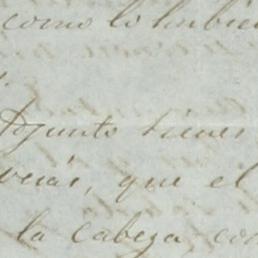 como lo hubie
Adjunto tienes
verás, que el
la cabeza, con